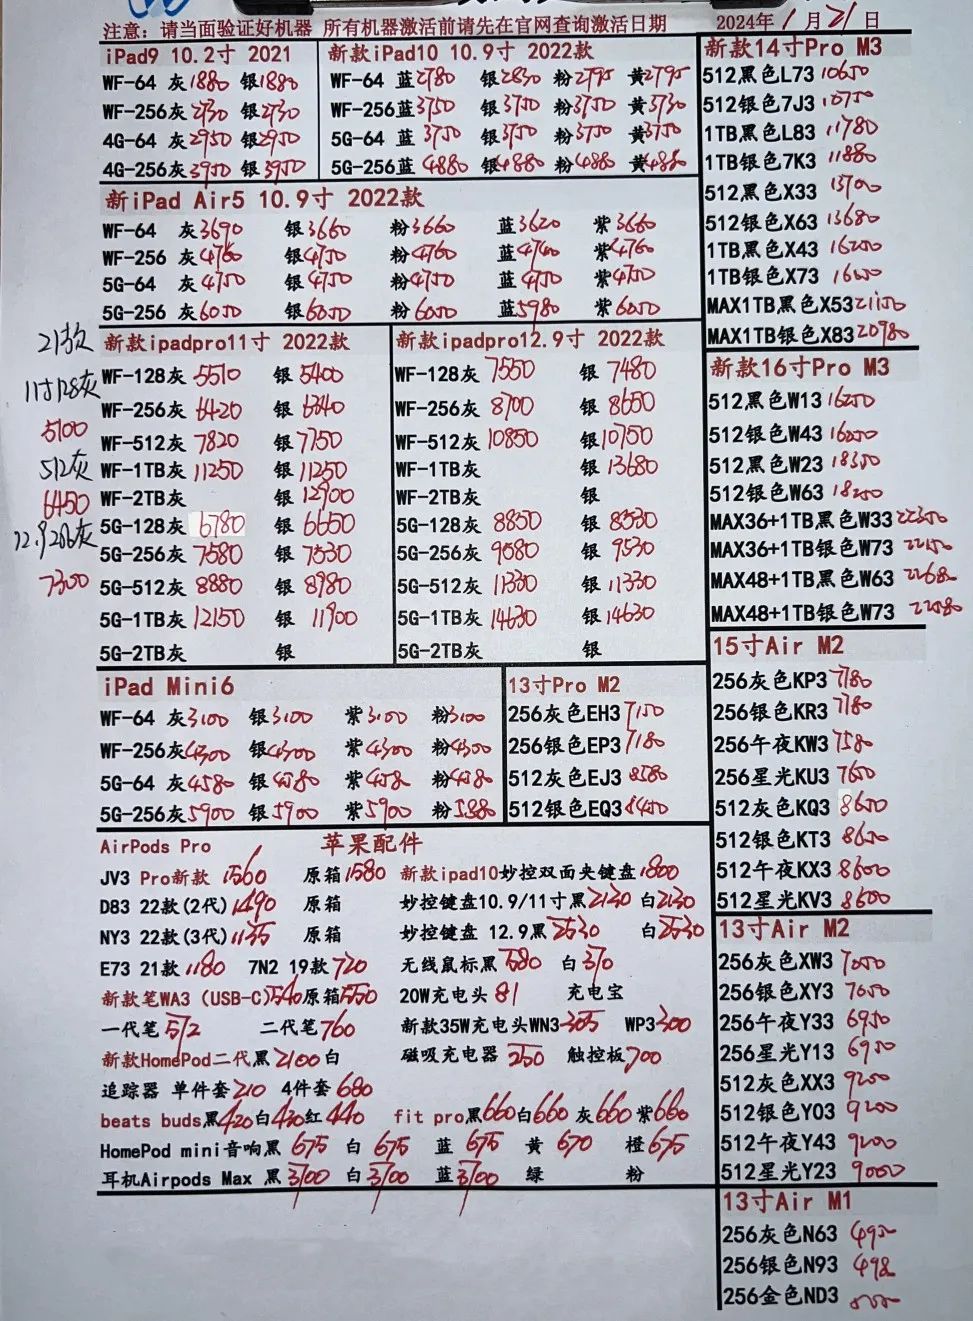 注意：请当面验证好机器 所有机器激活前请先在官网查询激活日期
2024年1月21日
iPad9 10.2寸 2021
WF-64 灰1880 银1880
WF-256灰2730 银2730
4G-64 灰2950 银2950
4G-256灰3950 银3950
新款iPad10 10.9寸 2022款
WF-64 蓝2780 银2830 粉2795 黄2795
WF-256蓝3750 银3750 粉3750 黄3730
5G-64 蓝3750 银3750 粉3750 黄3750
5G-256蓝4880 银4880 粉4880 黄4880
新iPad Air5 10.9寸 2022款
WF-64 灰3690 银3660 粉3660 蓝3620 紫3660
WF-256 灰4760 银4750 粉4760 蓝4740 紫4760
5G-64 灰4750 银4750 粉4750 蓝4750 紫4750
5G-256 灰6050 银6050 粉6050 蓝5980 紫6050
21款
11寸128灰
5100
512灰
6450
12.9 256灰
7300
新款ipadpro11寸 2022款
WF-128灰 5510 银 5400
WF-256灰 6420 银 6340
WF-512灰 7820 银 7750
WF-1TB灰 11250 银 11250
WF-2TB灰 银 12900
5G-128灰 6780 银 6650
5G-256灰 7580 银 7530
5G-512灰 8880 银 8980
5G-1TB灰 12150 银 11900
5G-2TB灰 银
新款ipadpro12.9寸 2022款
WF-128灰 7550 银 7480
WF-256灰 8700 银 8650
WF-512灰 10850 银10750
WF-1TB灰 银 13680
WF-2TB灰 银
5G-128灰 8850 银 8530
5G-256灰 9580 银 9530
5G-512灰 11330 银 11330
5G-1TB灰 14630 银 14630
5G-2TB灰 银
iPad Mini6
WF-64 灰3100 银3100 紫3100 粉3100
WF-256灰4300 银4300 紫4300 粉4300
5G-64 灰4580 银4580 紫4580 粉4580
5G-256灰5900 银5900 紫5900 粉5880
13寸Pro M2
256灰色EH3 7150
256银色EP3 7180
512灰色EJ3 8580
512银色EQ3 8450
AirPods Pro 苹果配件
JV3 Pro新款 1560 原箱1580
D83 22款(2代)1490 原箱
NY3 22款(3代)1135 原箱
E73 21款1180 7N2 19款720
新款笔WA3 (USB-C)540原箱550
一代笔572 二代笔760
新款HomePod二代黑2100白
追踪器 单件套210 4件套680
新款ipad10妙控双面夹键盘1800
妙控键盘10.9/11寸黑2130 白2130
妙控键盘 12.9黑2530 白2530
无线鼠标黑580 白370
20W充电头81 充电宝
新款35W充电头WN3 305 WP3 300
磁吸充电器 250 触控板700
beats buds黑420白430红440 fit pro黑660白660灰660紫660
HomePod mini音响黑675 白675 蓝675 黄670 橙675
耳机Airpods Max 黑3700 白3700 蓝3700 绿 粉
新款14寸Pro M3
512黑色L73 10650
512银色7J3 10750
1TB黑色L83 11780
1TB银色7K3 11880
512黑色X33 13700
512银色X63 13680
1TB黑色X43 16200
1TB银色X73 16200
MAX1TB黑色X53 21150
MAX1TB银色X83 20980
新款16寸Pro M3
512黑色W13 16250
512银色W43 16250
512黑色W23 18350
512银色W63 18250
MAX36+1TB黑色W33 22350
MAX36+1TB银色W73 22150
MAX48+1TB黑色W63
MAX48+1TB银色W73
15寸Air M2
256灰色KP3 7780
256银色KR3 7780
256午夜KW3 7580
256星光KU3 7650
512灰色KQ3 8650
512银色KT3 8650
512午夜KX3 8600
512星光KV3 8600
13寸Air M2
256灰色XW3 7050
256银色XY3 7050
256午夜Y33 6950
256星光Y13 6950
512灰色XX3 9200
512银色Y03 9200
512午夜Y43 9200
512星光Y23 9000
13寸Air M1
256灰色N63
256银色N93
256金色ND3